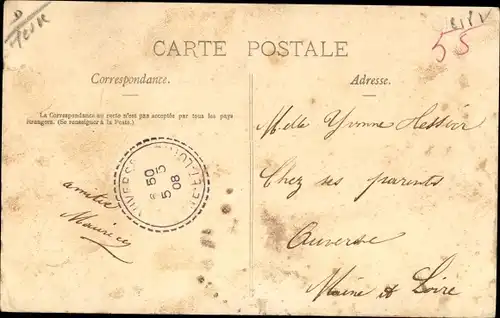 CARTE POSTALE
Correspondance.
Adresse.
La Correspondance au recto n'est pas acceptée par tous les pays
étrangers. (Se renseigner à la Poste.)
55
M.elle Yvonne
Chez ses parents
Auverse
Maine et Loire
amitié
Maurice
AUVERSE
5 08